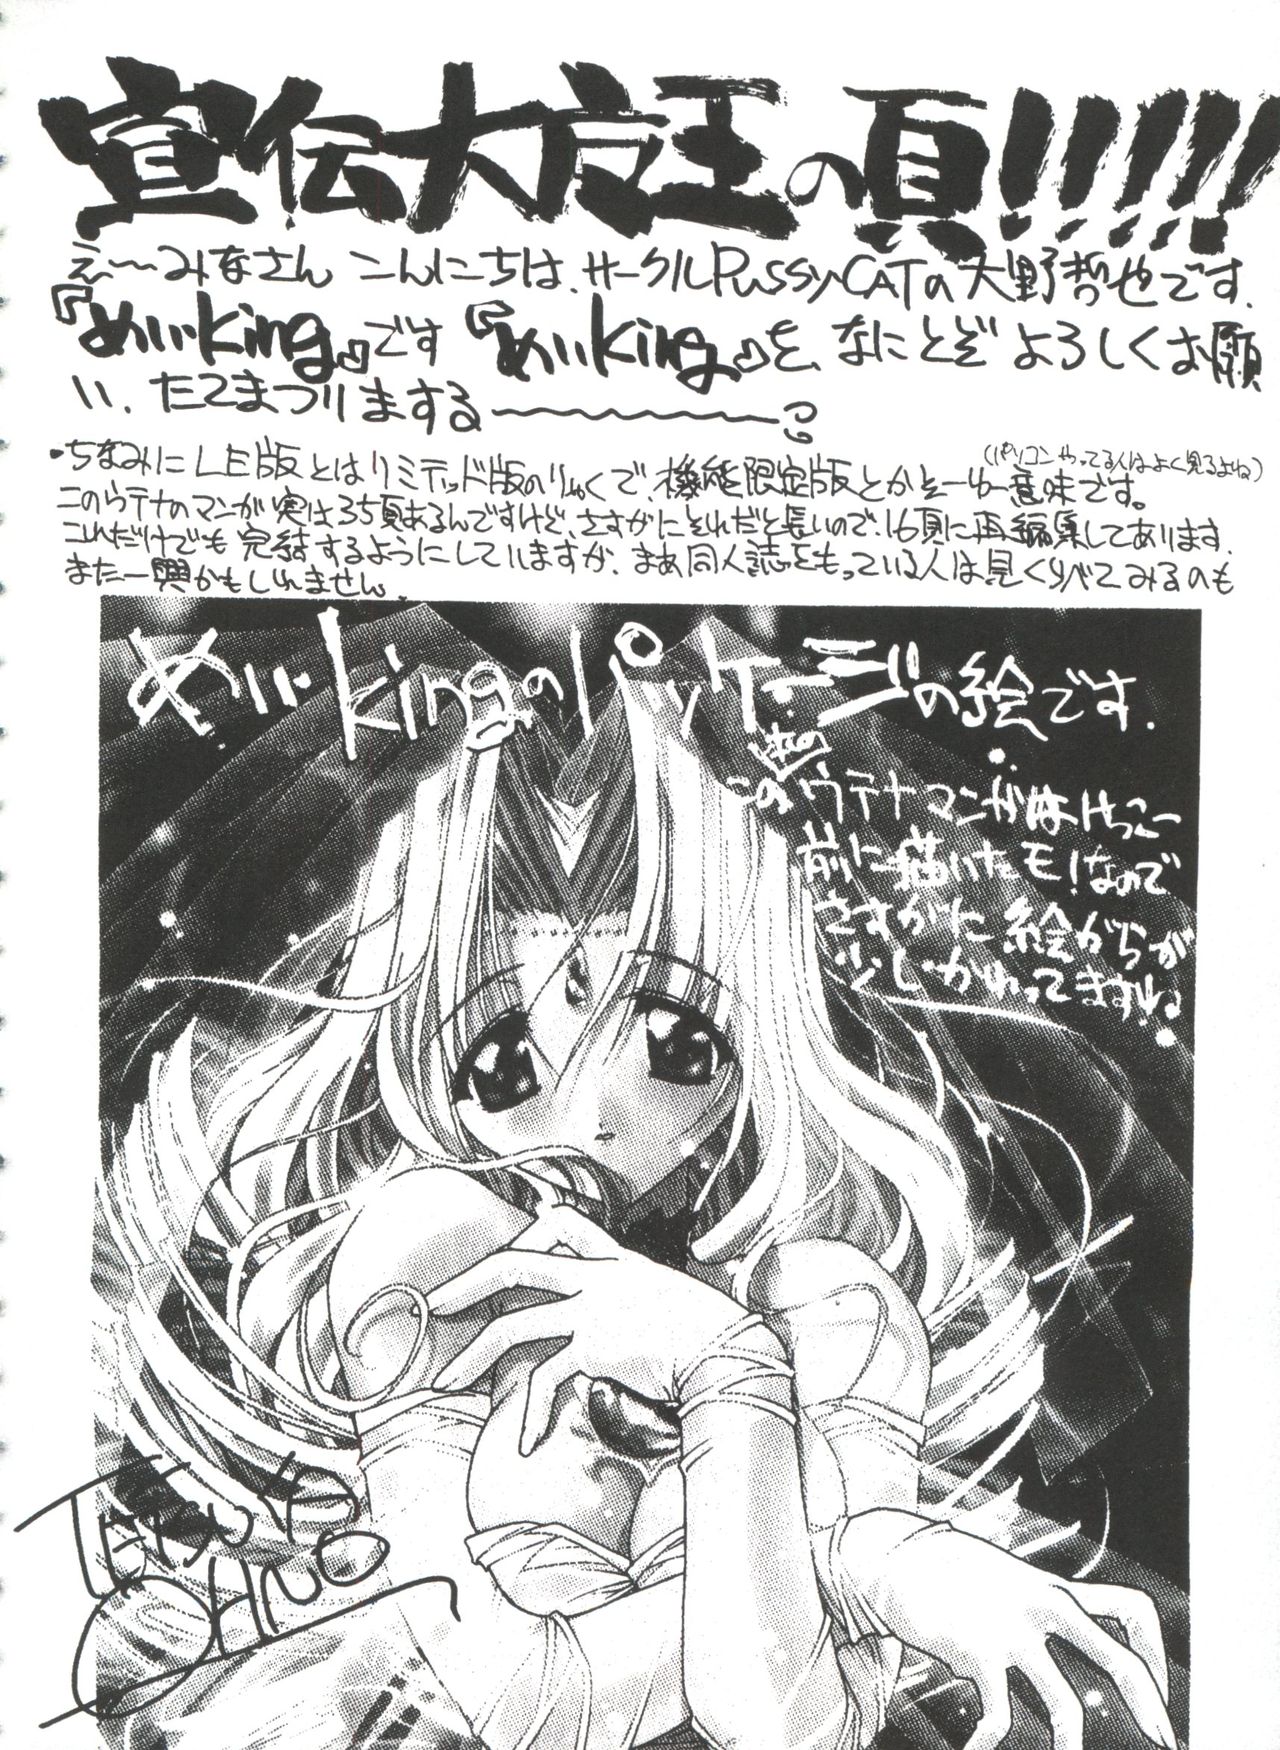 宣伝大魔王の頁!!!!!
え〜みなさん こんにちは、サークルPussyCATの大野哲也です.
『めいking』です『めいking』を、なにとぞ よろしくお願
い、たてまつりまする〜
(パソコンやってる人はよく見るよね)
・ちなみにLE版とはリミテッド版のりゃくで、機能限定版とかそーゆー意味です。
このウテナのマンガ実は35頁あるんですけど、さすがにそれだと長いので、16頁に再編集してあります.
これだけでも完結するようにしていますが、まあ同人誌をもっている人は見くらべてみるのも
また一興かもしれません.
めいkingのパッケージの絵です.
このウテナマンガはけっこー
前に描いたモノなので
さすがに絵がらが
少しかわってますね
TETSUYA
OHNO